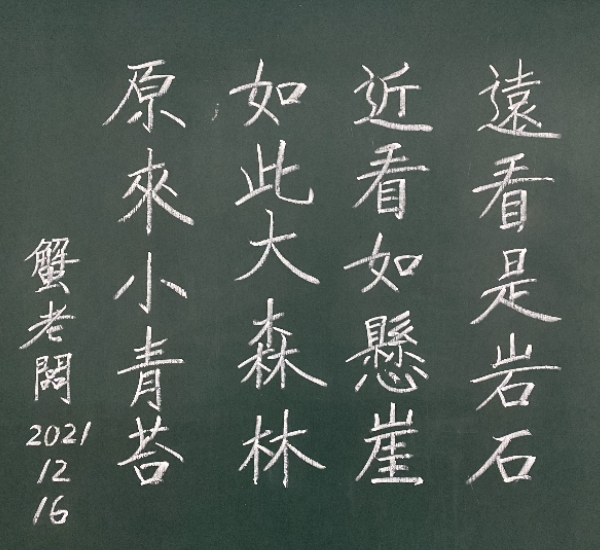 遠看是岩石
近看如懸崖
如此大森林
原來小青苔
蟹老闆
2021
12
16